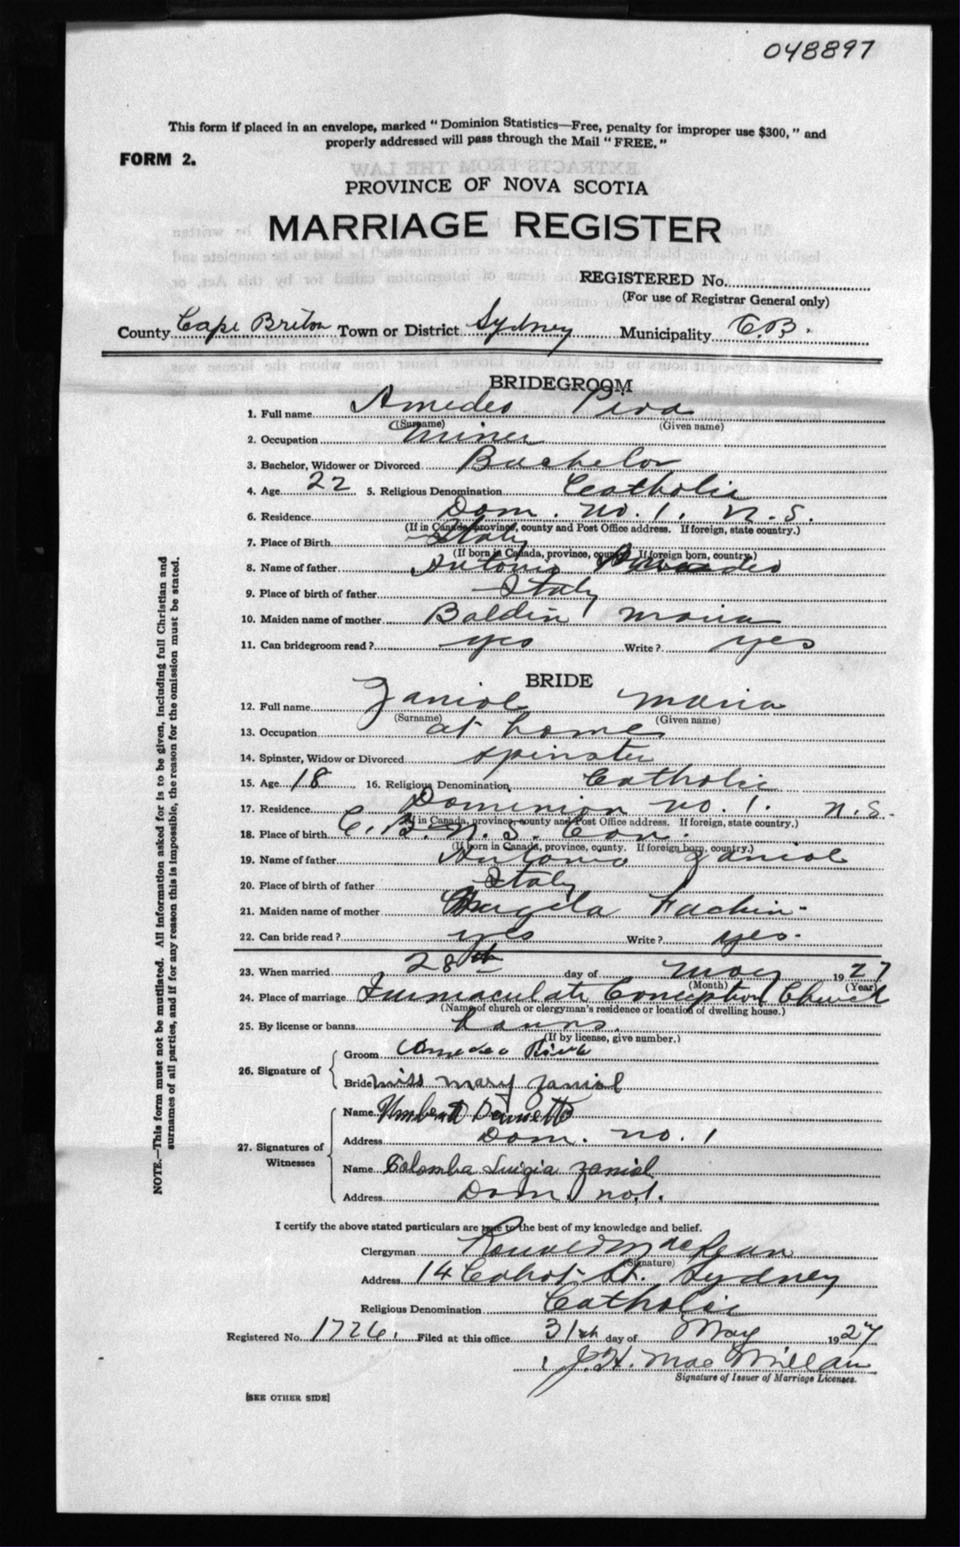 048897
This form if placed in an envelope, marked "Dominion Statistics—Free, penalty for improper use $300," and
properly addressed will pass through the Mail "FREE."
FORM 2.
PROVINCE OF NOVA SCOTIA
MARRIAGE REGISTER
REGISTERED No.
(For use of Registrar General only)
County Cape Breton Town or District Sydney Municipality C.B.
BRIDEGROOM
1. Full name Amedeo Piva
(Surname) (Given name)
2. Occupation miner
3. Bachelor, Widower or Divorced Bachelor
4. Age 22 5. Religious Denomination Catholic
6. Residence Dom. no. 1. N.S.
(If in Canada, province, county and Post Office address. If foreign, state country.)
7. Place of Birth Italy
(If born in Canada, province, county. If foreign born, country.)
8. Name of father Antonio
9. Place of birth of father Italy
10. Maiden name of mother Baldin Maria
11. Can bridegroom read? yes Write? yes
BRIDE
12. Full name Zaniol Maria
(Surname) (Given name)
13. Occupation at home
14. Spinster, Widow or Divorced spinster
15. Age 18 16. Religious Denomination Catholic
17. Residence Dominion no. 1. N.S.
(If in Canada, province, county and Post Office address. If foreign, state country.)
18. Place of birth C.B. N.S. Can.
(If born in Canada, province, county. If foreign born, country.)
19. Name of father Antonio Zaniol
20. Place of birth of father Italy
21. Maiden name of mother Angela Fachin
22. Can bride read? yes Write? yes.
23. When married 28th day of May 1927
(Month) (Year)
24. Place of marriage Immaculate Conception Church
(Name of church or clergyman's residence or location of dwelling house.)
25. By license or banns banns.
(If by license, give number.)
26. Signature of
Groom Amedeo Piva
Bride Miss Mary Zaniol
27. Signatures of Witnesses
Name
Address Dom. no. 1
Name Colomba Luigia Zaniol
Address Dom. no 1.
I certify the above stated particulars are true to the best of my knowledge and belief.
Clergyman Ronald
(Signature)
Address 14 Cabot St. Sydney
Religious Denomination Catholic
Registered No. 1726. Filed at this office 31st day of May 1927
J.H. MacMillan
Signature of Issuer of Marriage Licenses.
[SEE OTHER SIDE]
NOTE.—This form must not be mutilated. All information asked for is to be given, including full Christian and
surnames of all parties, and if for any reason this is impossible, the reason for the omission must be stated.